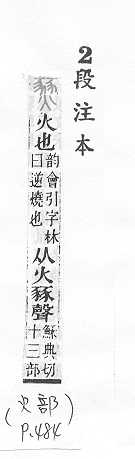 2段注本
燹火也韵會引字林曰逆燒也从火豩聲穌典切十三部
(火部)
P.484